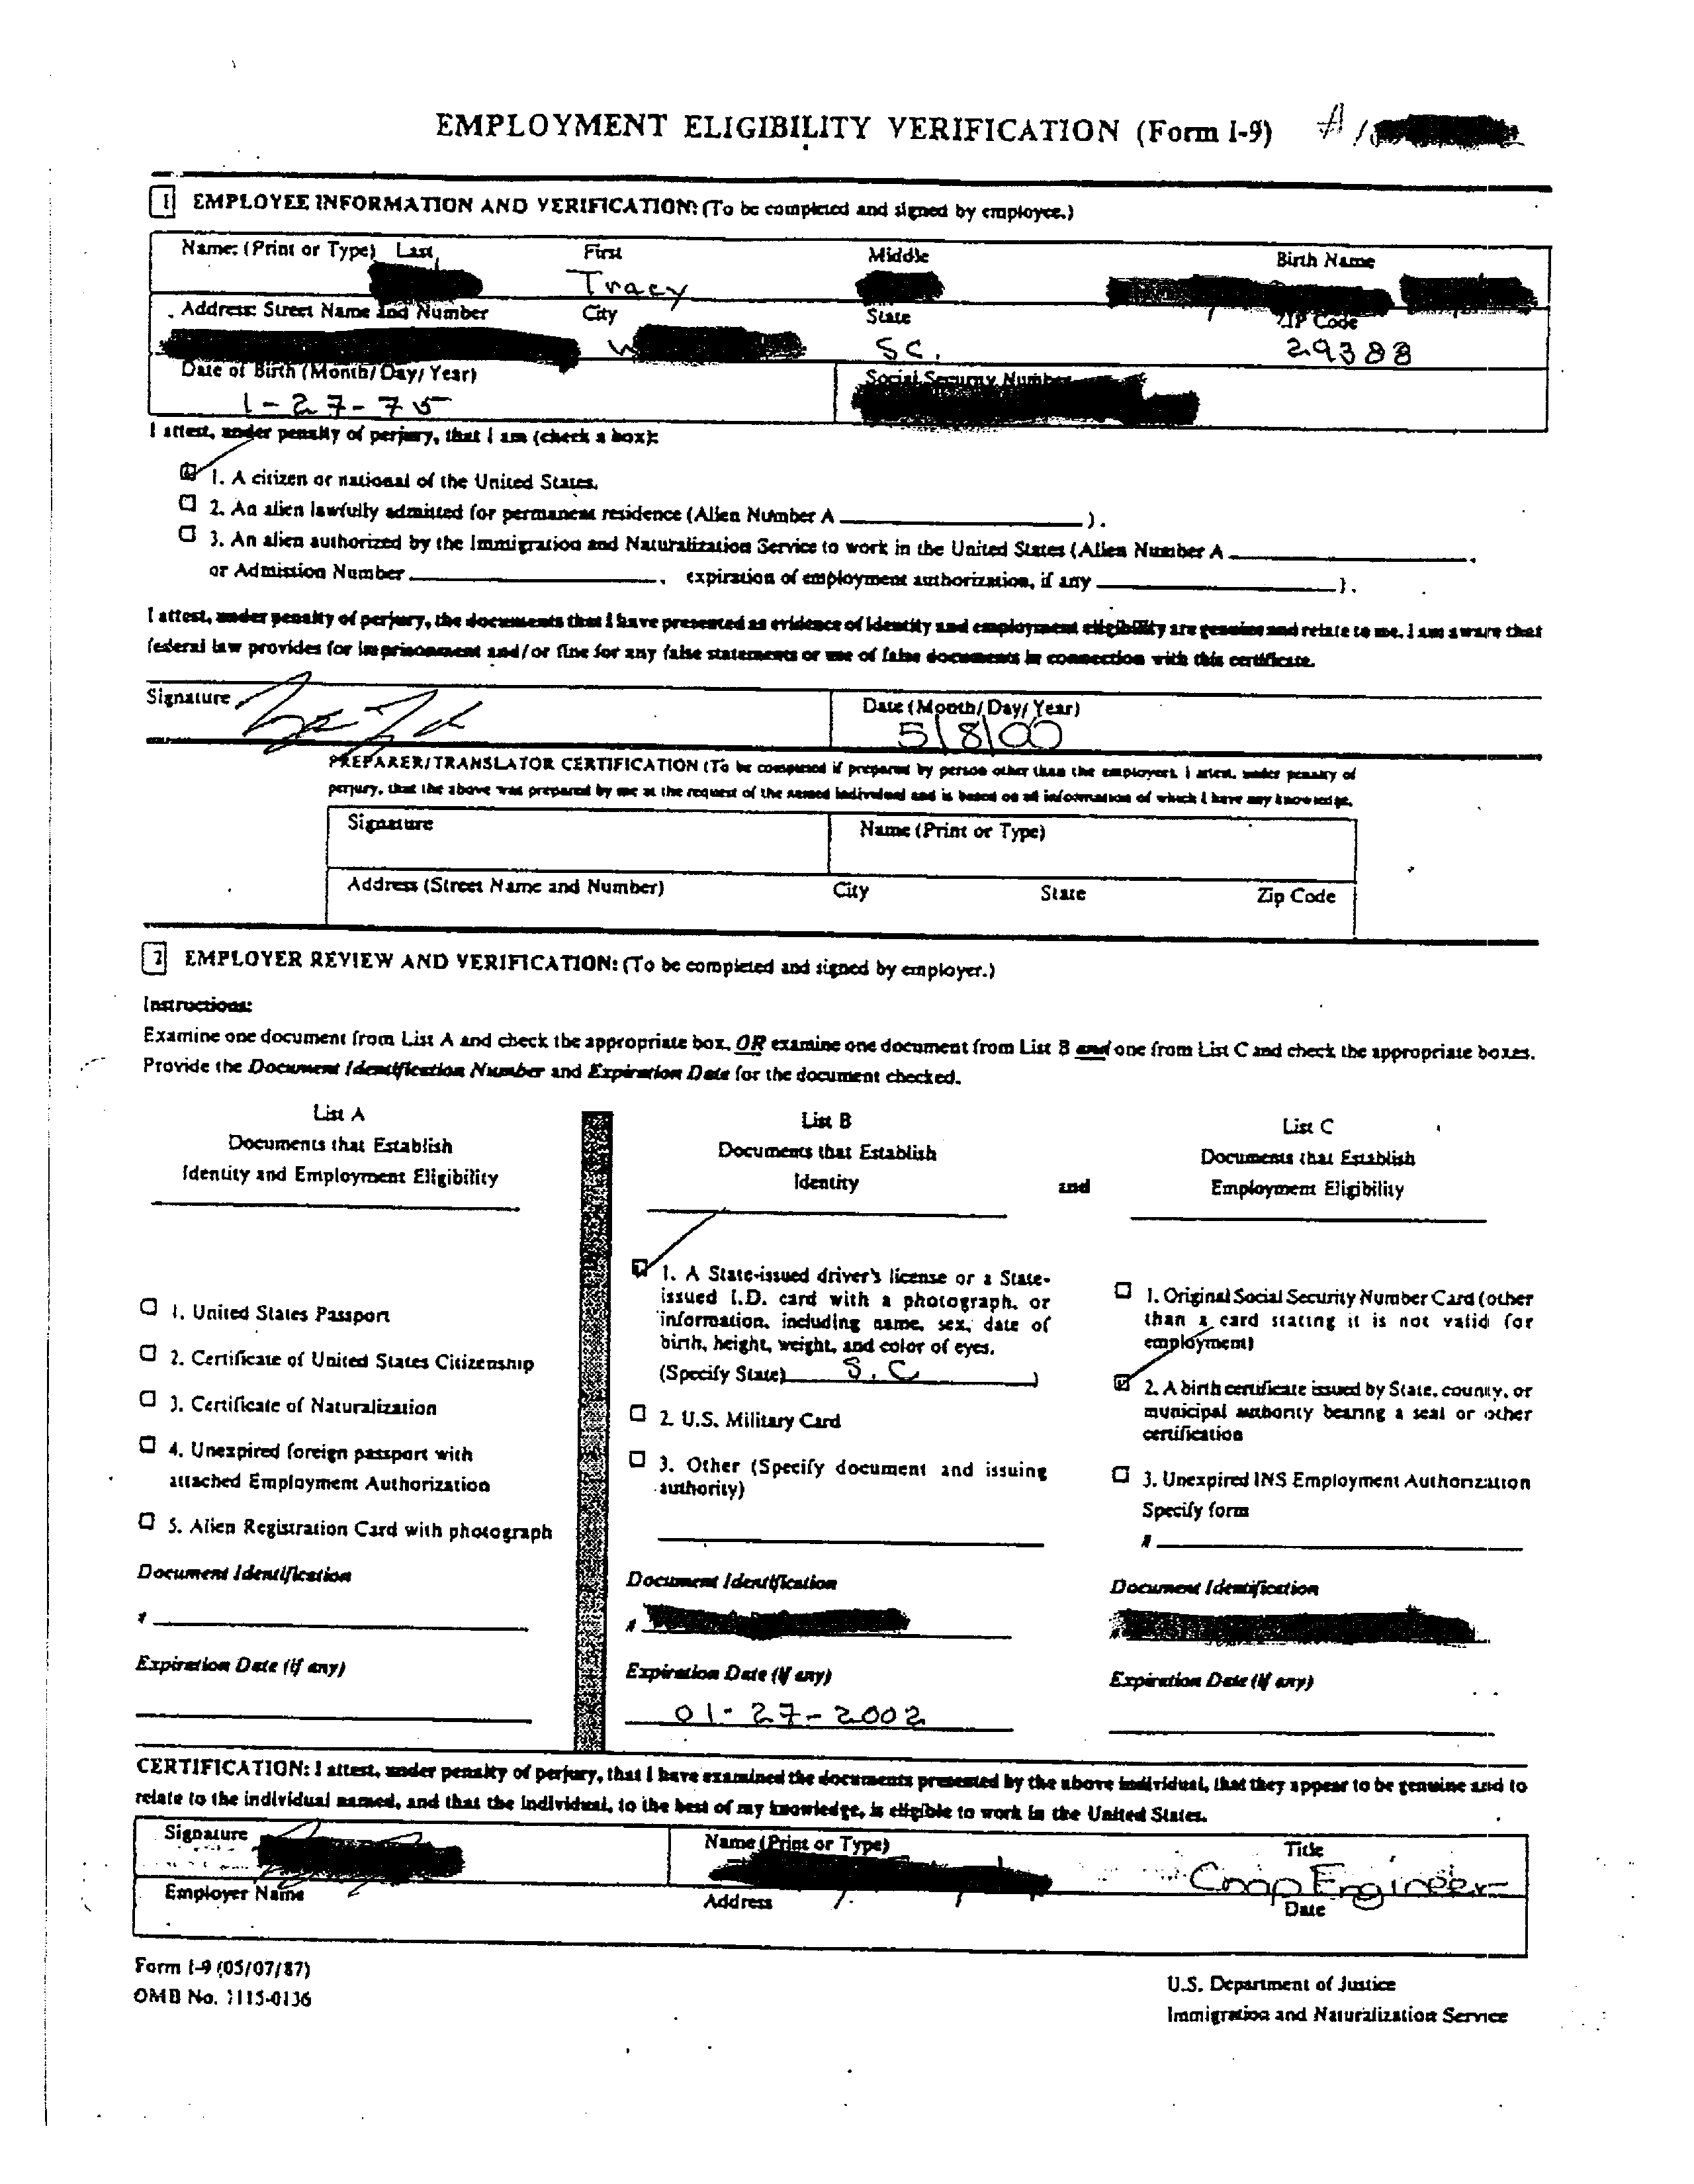 EMPLOYMENT ELIGIBILITY VERIFICATION (Form I-9) #
1 EMPLOYEE INFORMATION AND VERIFICATION: (To be completed and signed by employee.)
Name: (Print or Type) Last First Middle Birth Name
Tracy
Address: Street Name and Number City State ZIP Code
W SC. 29388
Date of Birth (Month/Day/Year) Social Security Number
1-27-75
I attest, under penalty of perjury, that I am (check a box):
1. A citizen or national of the United States.
2. An alien lawfully admitted for permanent residence (Alien Number A ).
3. An alien authorized by the Immigration and Naturalization Service to work in the United States (Alien Number A ,
or Admission Number , expiration of employment authorization, if any ).
I attest, under penalty of perjury, the documents that I have presented as evidence of identity and employment eligibility are genuine and relate to me. I am aware that
federal law provides for imprisonment and/or fine for any false statements or use of false documents in connection with this certificate.
Signature Date (Month/Day/Year)
5/8/00
PREPARER/TRANSLATOR CERTIFICATION (To be completed if prepared by person other than the employee). I attest, under penalty of
perjury, that the above was prepared by me at the request of the named individual and is based on all information of which I have any knowledge.
Signature Name (Print or Type)
Address (Street Name and Number) City State Zip Code
2 EMPLOYER REVIEW AND VERIFICATION: (To be completed and signed by employer.)
Instructions:
Examine one document from List A and check the appropriate box, OR examine one document from List B and one from List C and check the appropriate boxes.
Provide the Document Identification Number and Expiration Date for the document checked.
List A
Documents that Establish
Identity and Employment Eligibility
1. United States Passport
2. Certificate of United States Citizenship
3. Certificate of Naturalization
4. Unexpired foreign passport with
attached Employment Authorization
5. Alien Registration Card with photograph
Document Identification
#
Expiration Date (if any)
List B
Documents that Establish
Identity
and
1. A State-issued driver's license or a State-
issued I.D. card with a photograph, or
information, including name, sex, date of
birth, height, weight, and color of eyes.
(Specify State) S.C )
2. U.S. Military Card
3. Other (Specify document and issuing
authority)
Document Identification
#
Expiration Date (if any)
01-27-2002
List C
Documents that Establish
Employment Eligibility
1. Original Social Security Number Card (other
than a card stating it is not valid for
employment)
2. A birth certificate issued by State, county, or
municipal authority bearing a seal or other
certification
3. Unexpired INS Employment Authorization
Specify form
#
Document Identification
Expiration Date (if any)
CERTIFICATION: I attest, under penalty of perjury, that I have examined the documents presented by the above individual, that they appear to be genuine and to
relate to the individual named, and that the individual, to the best of my knowledge, is eligible to work in the United States.
Signature Name (Print or Type) Title
Coop Engineer
Employer Name Address Date
Form I-9 (05/07/87)
OMB No. 1115-0136
U.S. Department of Justice
Immigration and Naturalization Service